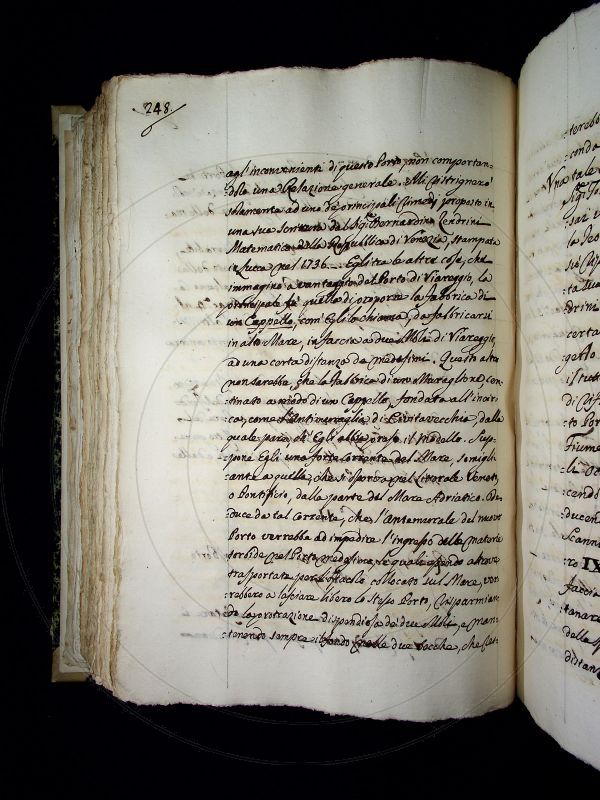 248.
agl'inconvenienti di questo Porto, non comportan-
dolo una Relazione generale. Mi ristringerò
solamente ad uno de' principali rimedj proposto in
una sua Scrittura dal Sig.r Bernardino Zendrini
Matematico della Repubblica di Venezia, stampata
in Lucca nel 1736. Egli tra le altre cose, che
immaginò a vantaggio del Porto di Viareggio, la
principale fù quella di proporre la fabbrica di
un Cappello, com'Egli lo chiama, da fabbricarsi
in alto Mare, in faccia a due Moli di Viareggio,
ad una certa distanza da' medesimi. Questo altro
non sarebbe, che la fabbrica di un Muraglione, con-
tinato a modo di un Cappello, fondato all'incir-
ca, come l'Antimuraglia di Civitavecchia, dalla
quale pare, ch'Egli abbia preso il modello. Sup-
pone Egli una forte corrente nel Mare, somigli-
ante a quella, che si osserva nel littorale Veneto,
o Pontificio, dalla parte del Mare Adriatico. De-
duce da tal corrente, che l'antemurale del nuovo
Porto verrebbe ad impedire l'ingresso delle materie
torbide nel Porto medesimo, le quali essendo altrove
trasportate per l'ostacolo collocato sul Mare, ver-
rebbero a lasciare libero lo stesso Porto, risparmian-
do la protrazione dispendiosa de' due Moli, e man-
tenendo sempre il fondo quelle due bocche, che